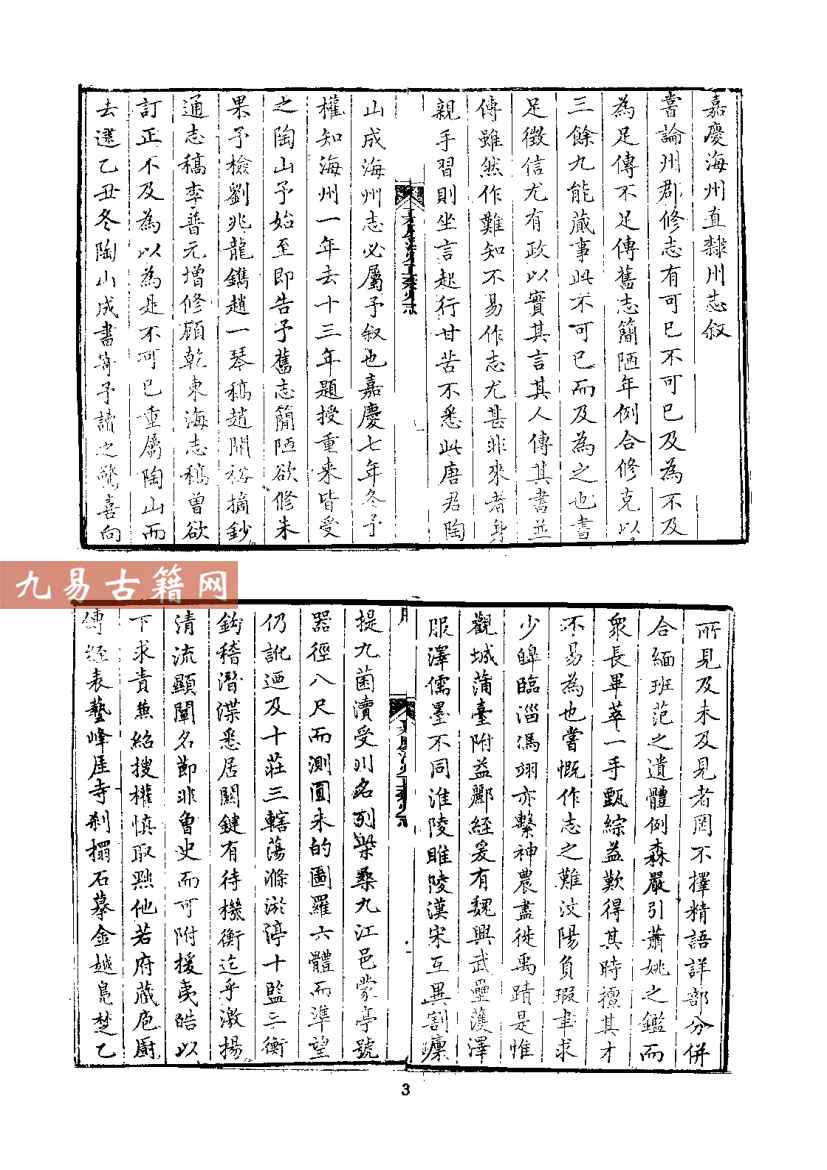 嘉慶海州直隸州志叙
嘗論州郡修志有可已不可已及為不及
為足傳不足傳舊志簡陋年例合修克以
三餘九能蕆事此不可已而及為之也書
足徵信尤有政以實其言其人傳其書並
傳雖然作難知不易作志尤甚非來者身
親手習則坐言起行甘苦不悉此唐君陶
山成海州志必屬予叙也嘉慶七年冬予
權知海州一年去十三年題授重来皆受
之陶山予始至即告予舊志簡陋欲修未
果予檢劉兆龍鐫趙一琴稿趙開裕摘鈔
通志稿李普元增修顧乾東海志稿曾欲
訂正不及為以為是不可已重屬陶山而
去逮乙丑冬陶山成書寄予讀之驚喜向
九易古籍网
所見及未及見者罔不擇精語詳部分併
合緬班范之遺體例森嚴引蕭姚之鑑而
衆長畢萃一手甄綜益歎得其時擅其才
不易為也嘗慨作志之難汶陽負瑕聿求
少皥臨淄馮翊亦繫神農盡徙禹蹟是惟
觀城蒲臺附益酈經爰有魏興武壘濩澤
服澤儒墨不同淮陵睢陵漢宋互異割㕓
提九菌瀆受川名列柴桑九江邑蒙亭號
器徑八尺而測圓未的圖羅六體而準望
仍訛迺及十莊三轄蕩滌淤渟十監三衡
鈎稽潛渫悉居關鍵有待機衡迄乎激揚
清流顯闡名節非魯史而可附援夷皓以
下求責兼綌搜權慎取黙他若府藏庖厨
傳經表藝峰厓寺刹搨石摹金越鳧楚乙
3